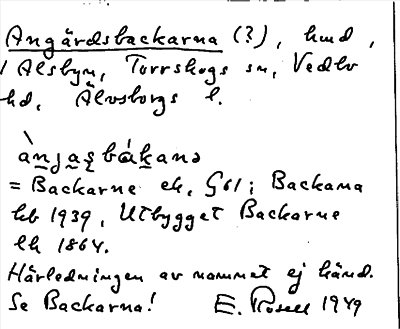 Angärdsbackarna (?), hmd,
i Alsbyn, Torrskogs sn, Vedbo
hd, Älvsborgs l.
ànjaş bákanə
= Backarne ek, G61; Backarna
hb 1939, Utbygget Backarne
lh 1864.
Härledningen av namnet ej känd.
Se Backarna! E. Rosell 1949